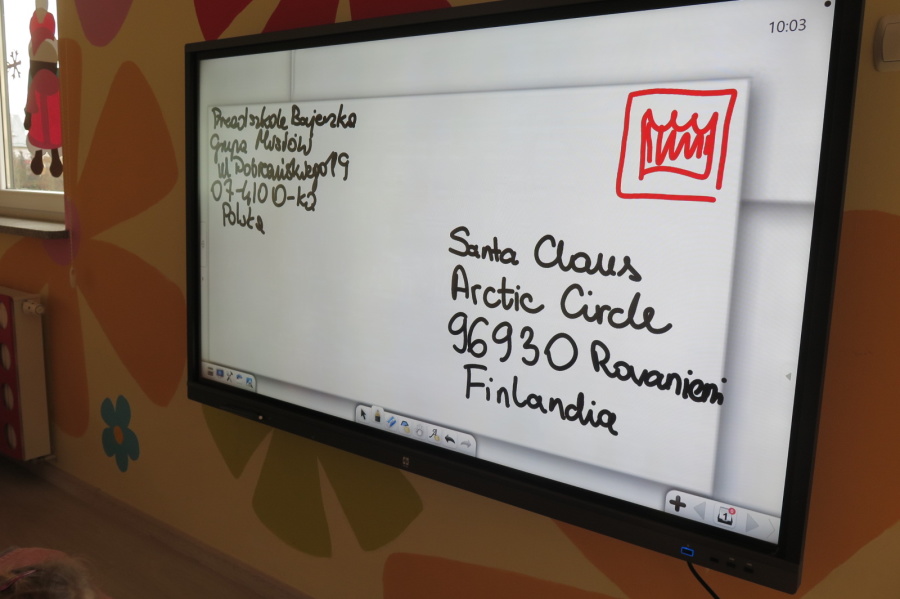 10:03
Przedszkole Bajeczka
Grupa Misiów
ul. Dobrzańskiego 19
07-410 O-ka
Polska
Santa Claus
Arctic Circle
96930 Rovaniemi
Finlandia
1